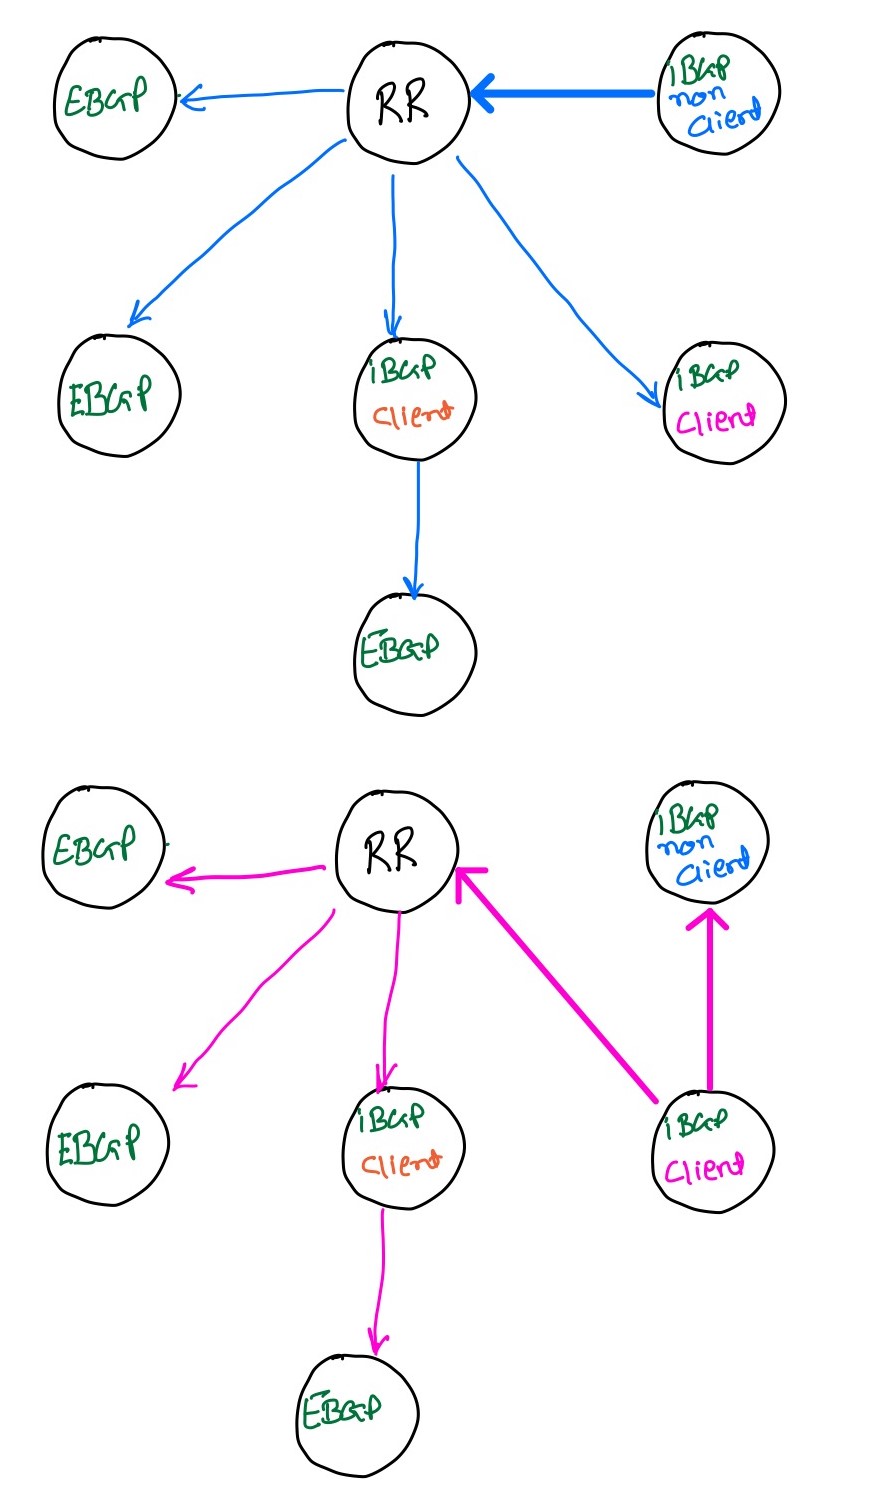 EBGP
RR
iBGP
non
Client
EBGP
iBGP
Client
iBGP
Client
EBGP
EBGP
RR
iBGP
non
Client
EBGP
iBGP
Client
iBGP
Client
EBGP